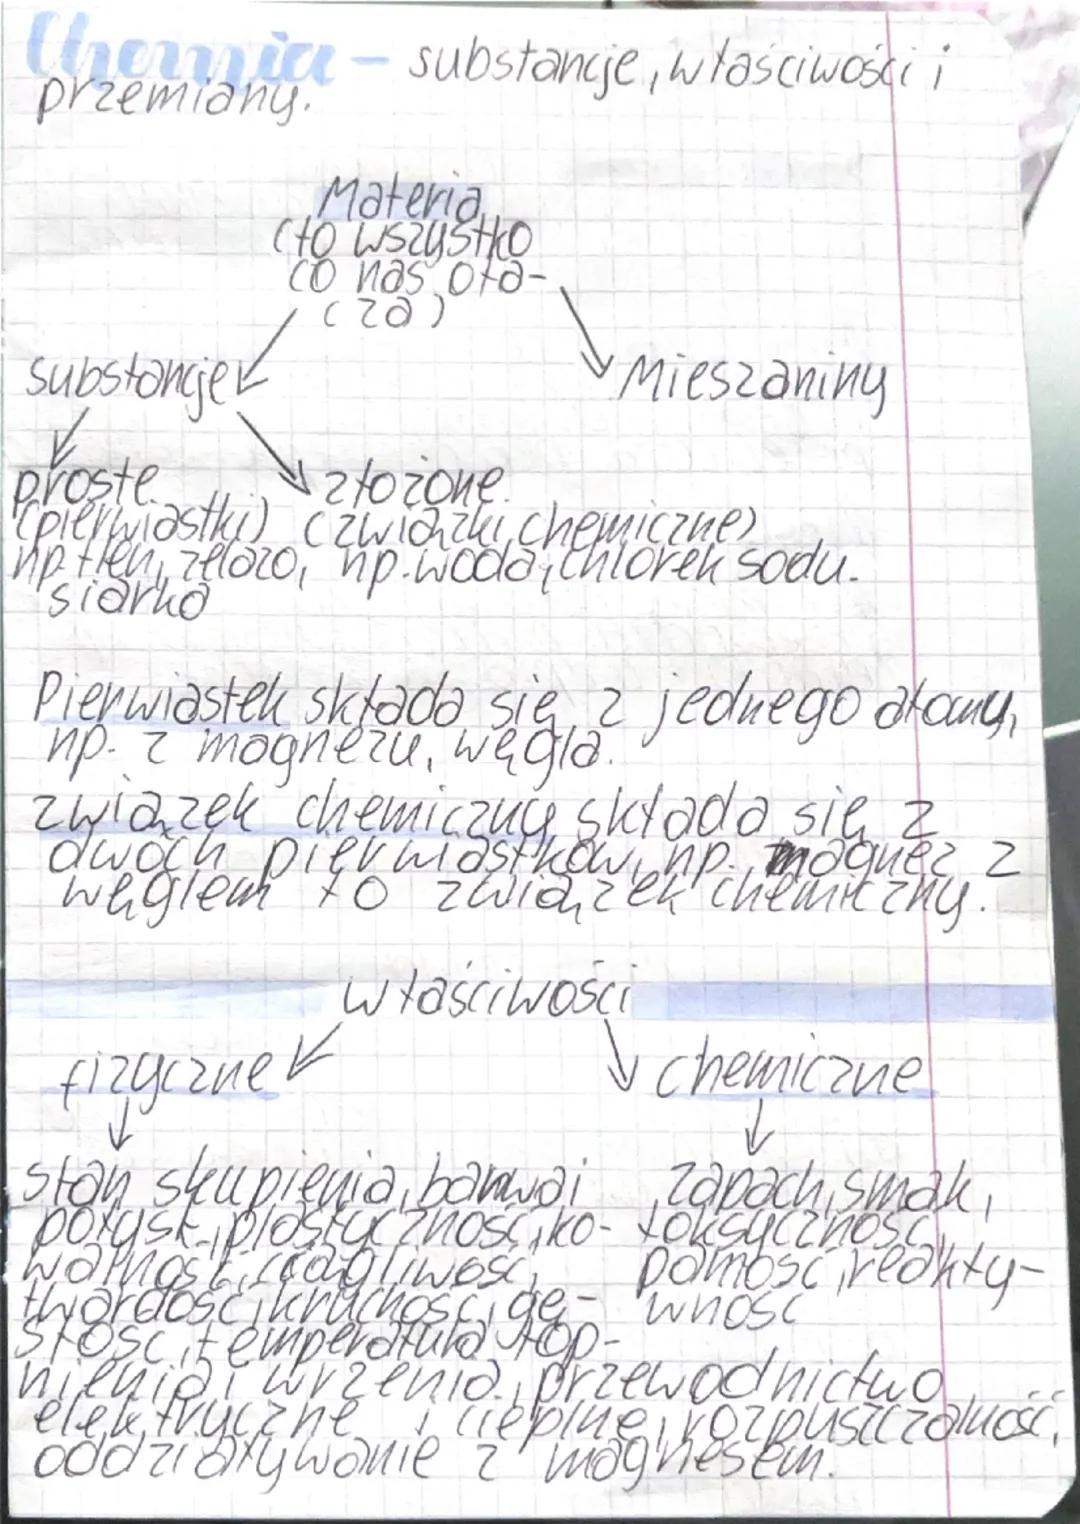 Chemia - substancje, właściwości i
przemiany.
Materia
(to wszystko
co nas ota-
cza)
substancje
Mieszaniny
proste
złożone.
(pierwiastki)
(związki chemiczne)
np. tlen, żelazo,
np. woda, chlorek sodu.
siarka
Pierwiastek składa się z jednego atomu,
np. z magnezu, węgla.
związek chemiczny składa się z
dwóch pierwiastków, np. magnez z
węglem to związek chemiczny.
właściwości
fizyczne
chemiczne
stan skupienia, barwa i
połysk, plastyczność, ko-
walność, ciągliwość,
twardość, kruchość, gę-
stość, temperatura top-
nienia i wrzenia, przewodnictwo
elektryczne i cieplne, rozpuszczalność,
oddziaływanie z magnesem.
zapach, smak,
toksyczność,
palność, reakty-
wność